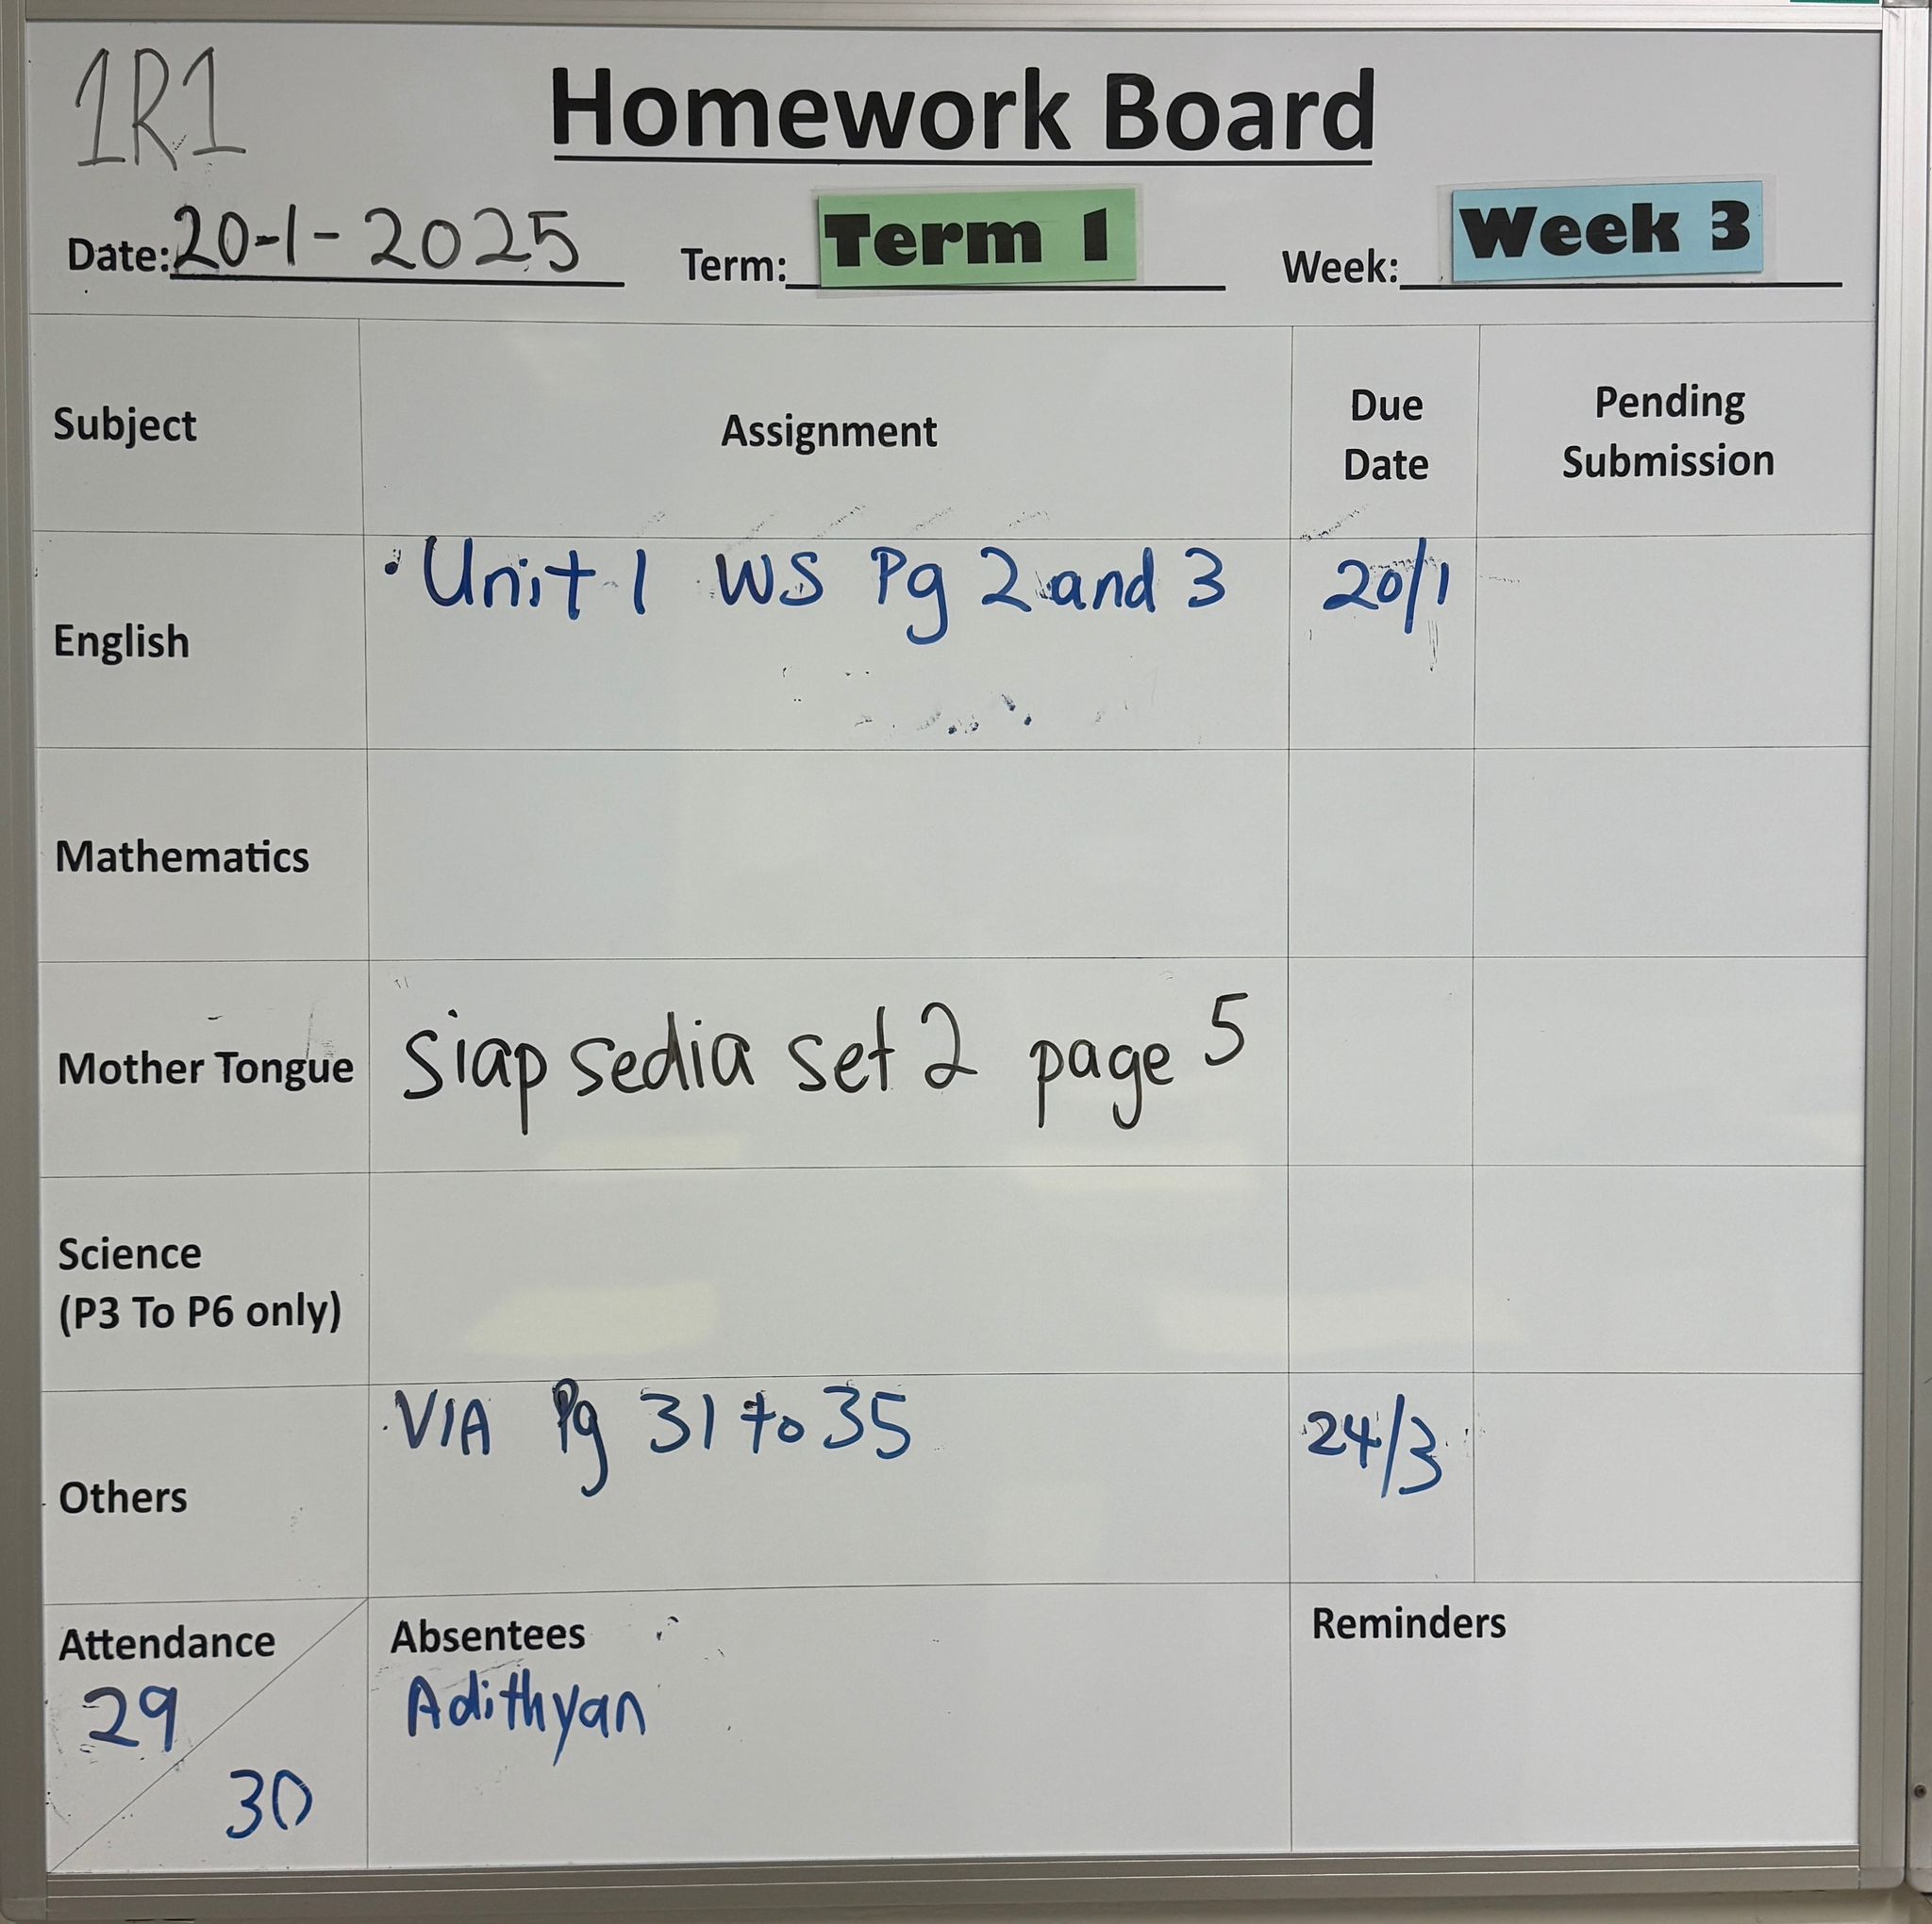 1R1
Homework Board
Date: 20-1-2025 Term: Term 1 Week: Week 3
Subject Assignment Due Date Pending Submission
English • Unit 1 WS Pg 2 and 3 20/1
Mathematics
Mother Tongue siap sedia set 2 page 5
Science
(P3 To P6 only)
Others VIA Pg 31 to 35 24/3
Attendance Absentees Reminders
29 Adithyan
30